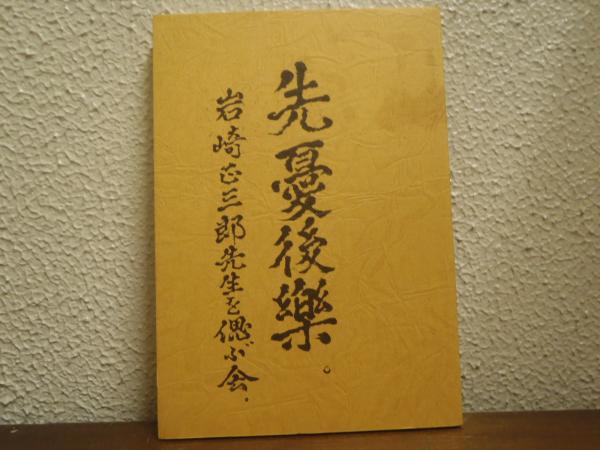 先憂後樂。
岩崎正三郎先生を偲ぶ会.